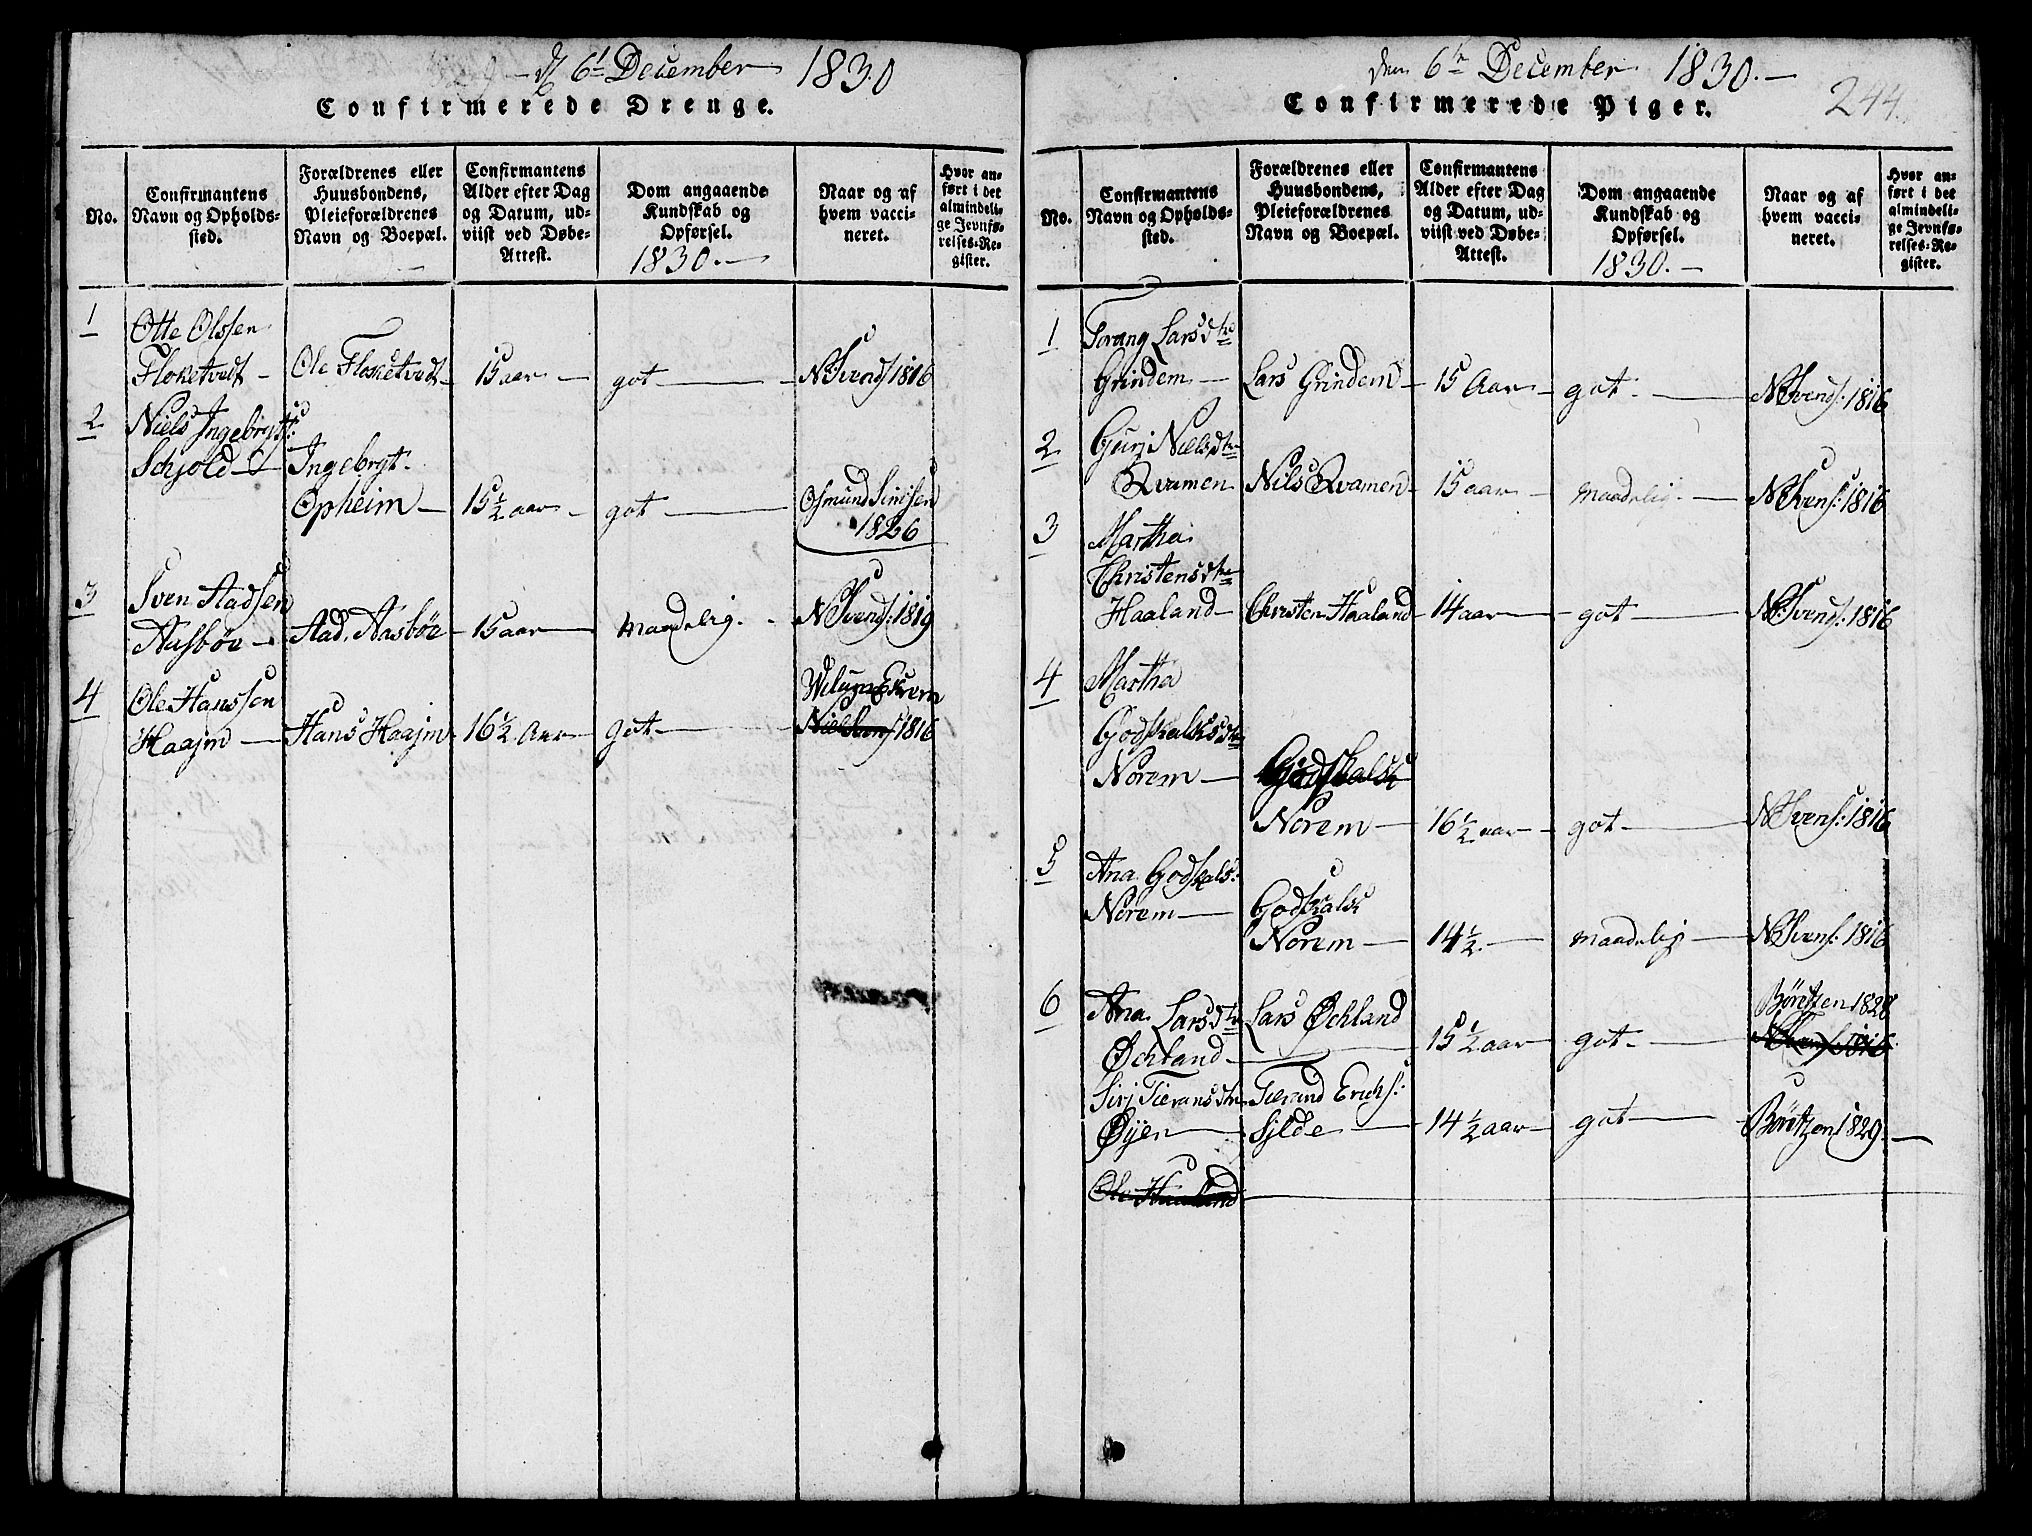 6t December 1830
Confirmerede Drenge.
No.
Confirmantens
Navn og Opholds-
sted.
Forældrenes eller
Huusbondens,
Pleieforældrenes
Navn og Boepæl.
Confirmantens
Alder efter Dag
og Datum, ud-
viist ved Døbe-
Attest.
Dom angaaende
Kundskab og
Opførsel.
1830.—
Naar og af
hvem vacci-
neret.
Hvor an-
ført i det
almindeli-
ge Jevnfø-
relses-Re-
gister.
1
Otte Olssen
Floketvedt — Ole Floketvedt — 15 aar — got — N Svends 1816
2
Niels Ingebrygts:
Schjold — Ingebrygt
Opheim — 15½ aar — got — Osmund Simsen
1826
3
Sven Aadsen
Aasbøe — Aad. Aasbøe — 15 aar — maadelig. — N Svends: 1819
4
Ole Hanssen
Haajm — Hans Haajm 16½ Aar — got — 1816
den 6te December 1830.—
Confirmerede Piger.
244.
No.
Confirmantens
Navn og Opholds-
sted.
Forældrenes eller
Huusbondens,
Pleieforældrenes
Navn og Boepæl.
Confirmantens
Alder efter Dag
og Datum, ud-
viist ved Døbe-
Attest.
Dom angaaende
Kundskab og
Opførsel.
1830.—
Naar og af
hvem vacci-
neret.
Hvor an-
ført i det
almindeli-
ge Jevnfø-
relses-Re-
gister.
1
Torang Larsdtr
Grindem — Lars Grindem — 15 Aar — got — N Svends: 1816
2
Guri Nielsdtr
Qvamen Nils Qvamen — 15 aar — maadelig — N Svens: 1816
3
Martha
Christensdtr
Haaland — Christen Haaland 14 aar — got — N Svends: 1816
4
Martha
Godskalksdtr
Norem — Godskalk
Norem — 16½ aar — got — N Svens: 1816
5
Ana Godskals:
Norem — Godskalk
Norem — 14½ — maadelig — N Svens: 1816
6
Ana Larsdtr Lars Øchland Børetzen 1828
Øchland — 15½ aar — got — N Svens 1816
Sirj Tieransdtr Tierand Erichs:
Øyen — Sjlde — 14½ aar — got — Børetzen 1829 —
Ole Haaland